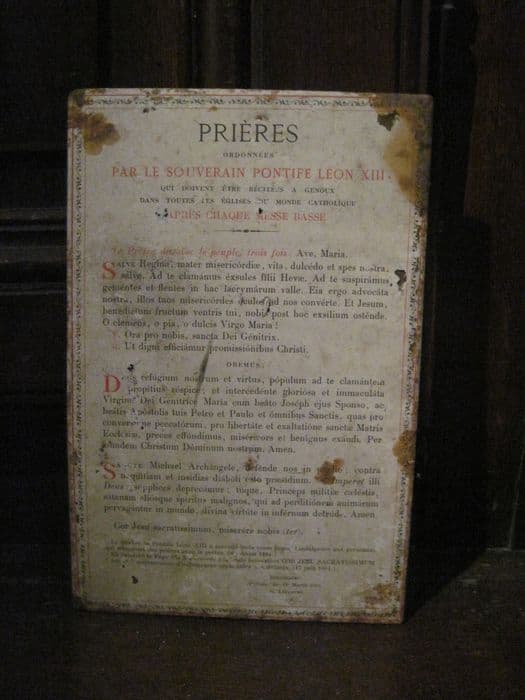 PRIÈRES
ORDONNÉES
PAR LE SOUVERAIN PONTIFE LÉON XIII
QUI DOIVENT ÊTRE RÉCITÉES A GENOUX
DANS TOUTES LES ÉGLISES DU MONDE CATHOLIQUE
APRÈS CHAQUE MESSE BASSE
Le Prêtre avec le peuple, trois fois: Ave, Maria.
Salve Regina, mater misericórdiæ, vita, dulcédo et spes nostra,
salve. Ad te clamámus éxsules fílii Hevæ. Ad te suspirámus,
geméntes et flentes in hac lacrymárum valle. Eia ergo advocáta
nostra, illos tuos misericórdes óculos ad nos convérte. Et Jesum,
benedíctum fructum ventris tui, nobis post hoc exsílium osténde.
O clemens, o pia, o dulcis Virgo María!
Ora pro nobis, sancta Dei Génitrix.
Ut digni efficiámur promissiónibus Christi.
OREMUS:
Deus refúgium nostrum et virtus, pópulum ad te clamántem
propítius réspice; et intercedénte gloriósa et immaculáta
Vírgine Dei Genitríce María cum beáto Joséph ejus Sponso, ac
beátis Apóstolis tuis Petro et Paulo et ómnibus Sanctis, quas pro
conversióne peccatórum, pro libertáte et exaltatióne sanctæ Matris
Ecclésiæ, preces effúndimus, miséricors et benígnus exáudi. Per
eúmdem Christum Dóminum nostrum. Amen.
Sancte Michael Archángele, defénde nos in prælio; contra
nequítiam et insídias diáboli esto præsídium. Imperet illi
Deus, súpplices deprecámur; tuque, Princeps milítiæ cœléstis,
sátanam aliósque spíritus malígnos, qui ad perditiónem animárum
pervagántur in mundo, divína virtúte in inférnum detrúde. Amen
Cor Jesu sacratissimum, miserére nobis (ter).
COR JESU, SACRATISSIMUM